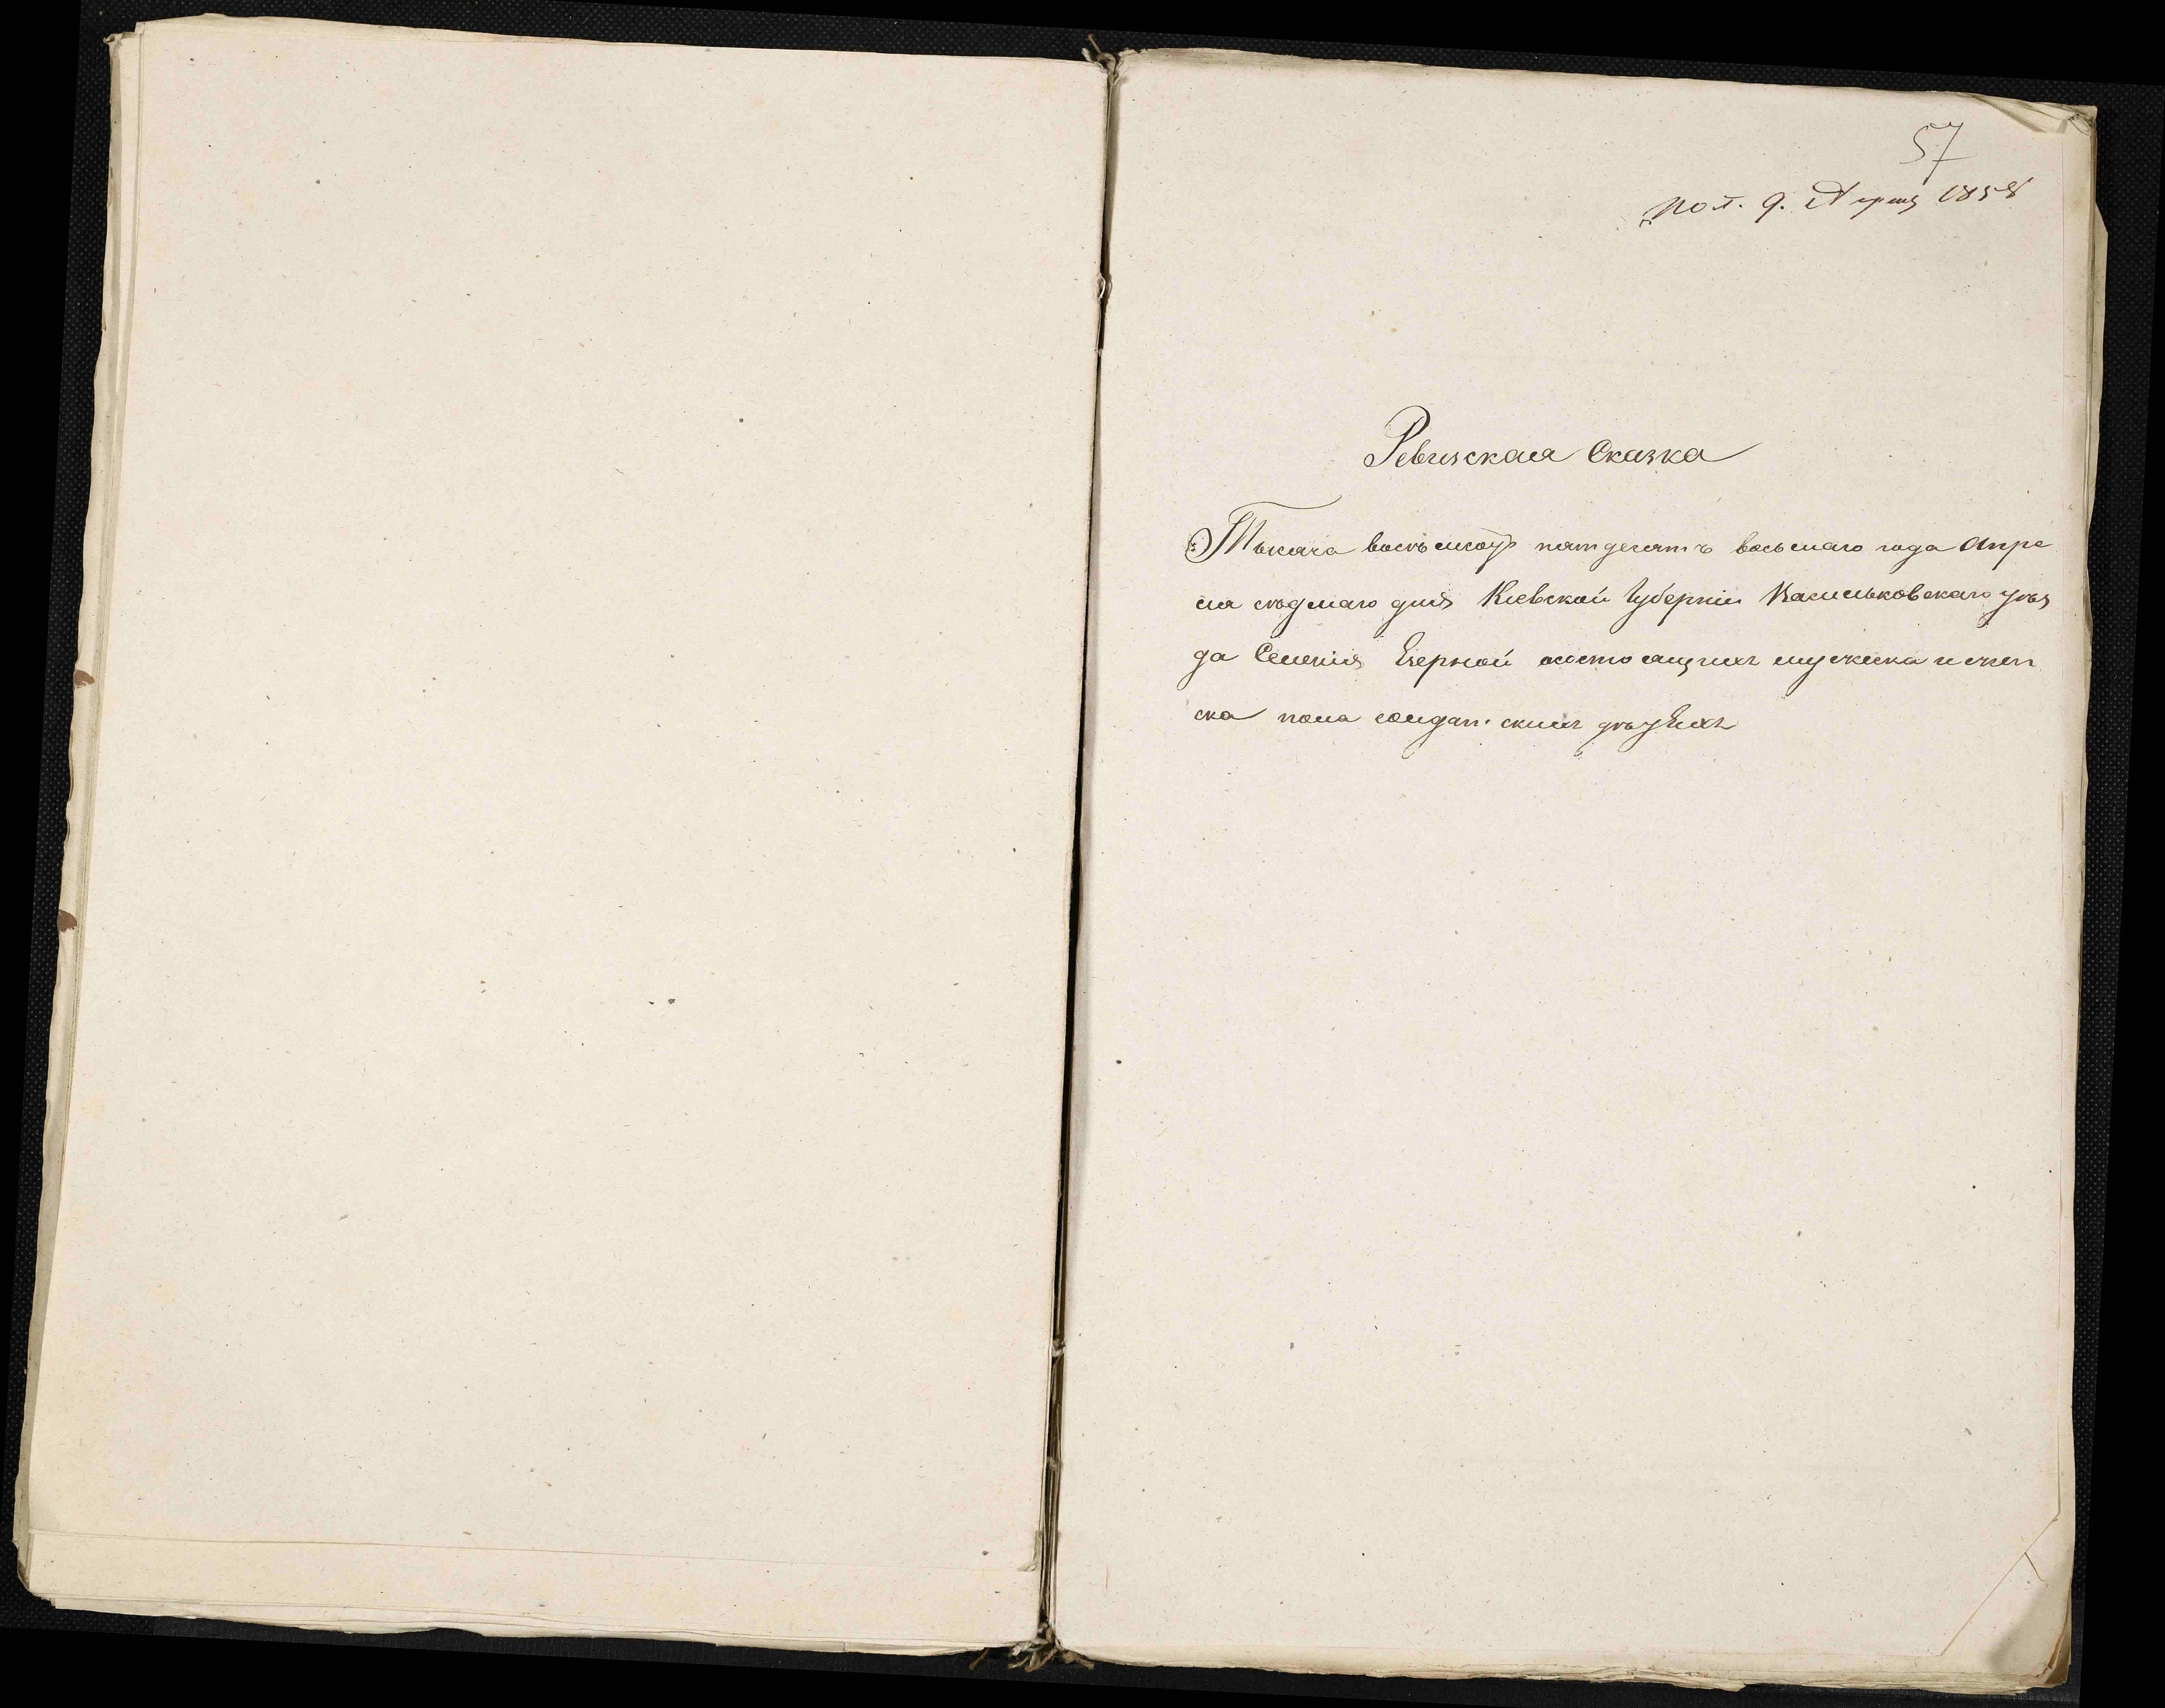 57
Пол. 9. Апреля 1858
Ревизская Сказка
Тысяча восемьсотъ пятдесятъ восьмаго года Апре
ля съдмаго дня Кіевской Губерніи Васильковскаго уѣз
да Селенія Езерной осостоящихъ мужеска и жен
ска пола солдатскихъ